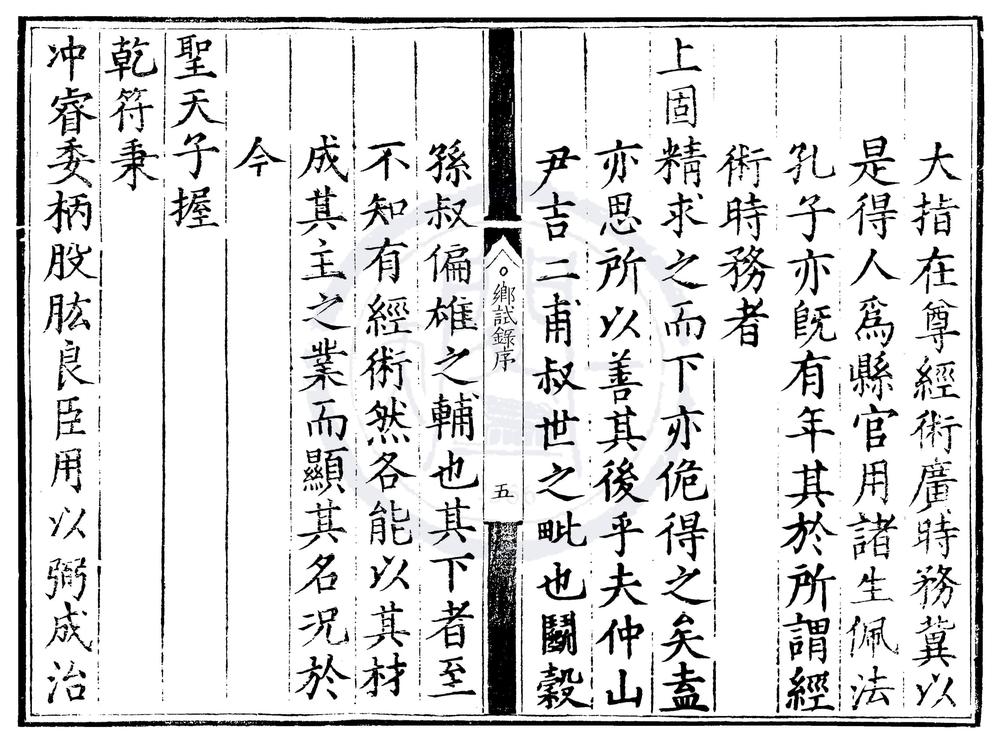 大指在尊經術廣時務冀以
是得人爲縣官用諸生佩法
孔子亦既有年其於所謂經
術時務者
上固精求之而下亦佹得之矣盍
亦思所以善其後乎夫仲山
尹吉二甫叔世之毗也鬬穀
鄉試錄序
五
孫叔偏雄之輔也其下者至
不知有經術然各能以其材
成其主之業而顯其名况於
今
聖天子握
乾符秉
冲睿委柄股肱良臣用以弼成治